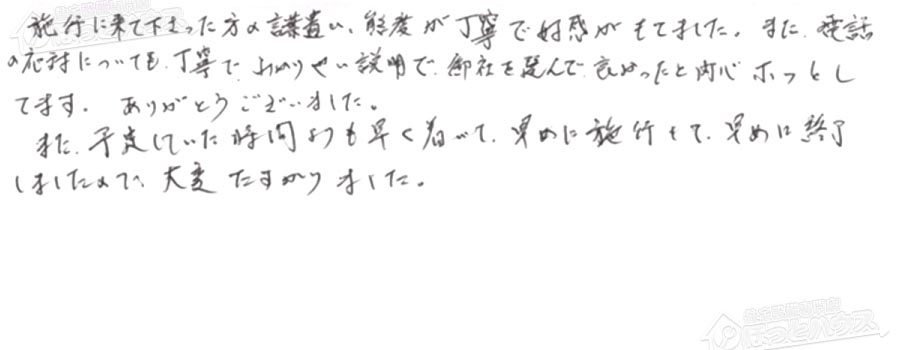 施行に来て下さった方の言葉遣い、態度が丁寧で好感がもてました。また、電話
の応対についても、丁寧で、わかりやすい説明で、御社を選んで良かったと内心ホッとし
てます。ありがとうございました。
また、予定していた時間よりも早く着いて、早めに施行して、早めに終了
しましたので、大変たすかりました。
ほっとハウス